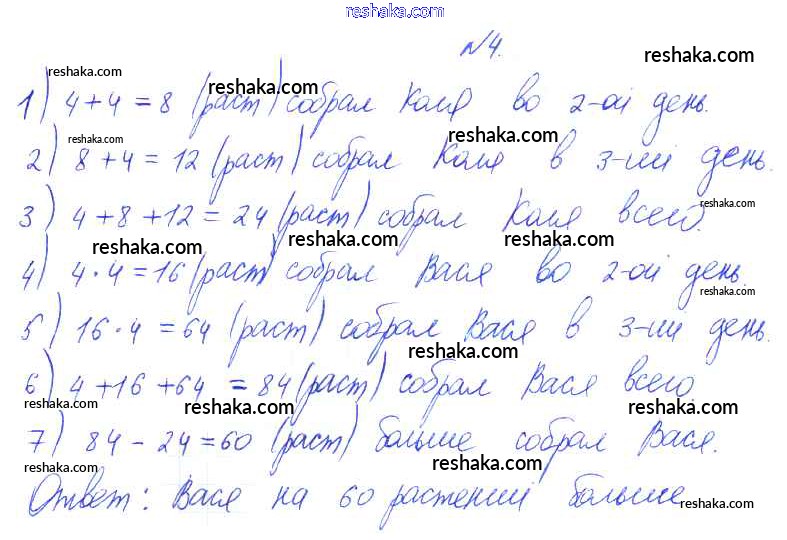 reshaka.com
№4.
reshaka.com
reshaka.com
1) 4+4=8 (раст) собрал Коля во 2-ой день.
reshaka.com
reshaka.com
reshaka.com
2) 8+4=12 (раст) собрал Коля в 3-ий день.
reshaka.com
3) 4+8+12=24 (раст) собрал Коля всего.
reshaka.com
reshaka.com
reshaka.com
reshaka.com
4) 4·4=16 (раст) собрал Вася во 2-ой день.
reshaka.com
5) 16·4=64 (раст) собрал Вася в 3-ий день.
reshaka.com
6) 4+16+64=84 (раст) собрал Вася всего.
reshaka.com
reshaka.com
reshaka.com
7) 84-24=60 (раст) больше собрал Вася.
reshaka.com
reshaka.com
Ответ: Вася на 60 растений больше
reshaka.com